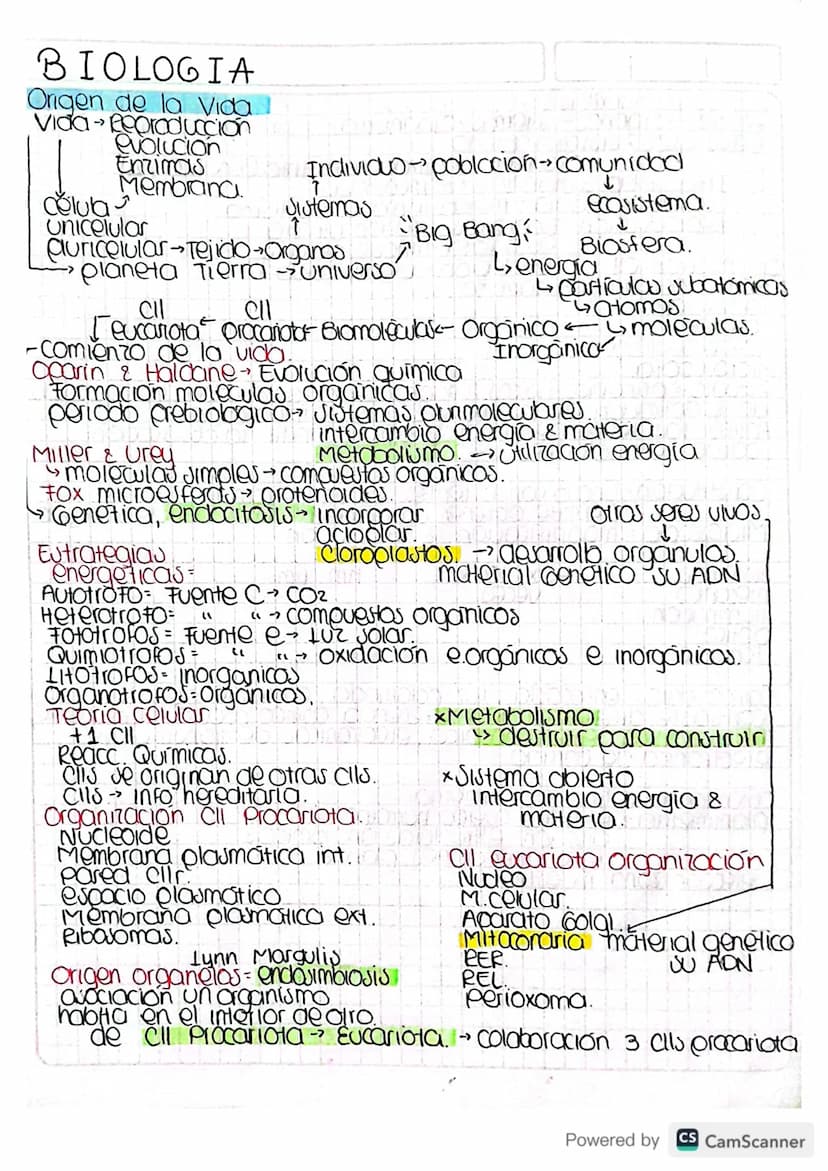 BIOLOGIA
Origen de la Vida
Vida → Reproducción
evolución
Enzimas
Membrana.
Individuo → población → comunidad
célula
Sistemas
ecosistema.
unicelular
Big Bang
pluricelular → Tejido → Organos
Biosfera.
planeta Tierra → universo
↳ energía
↳ partículas subatómicas
↳ atomos
Cll Cll
eucariota ← procariota ← Biomoléculas ← Orgánico ← ↳ moléculas.
Inorgánico
- comienzo de la vida.
Oparin & Haldane → Evolución química
Formación moléculas orgánicas.
periodo prebiologico → Sistemas plurimoleculares.
intercambio energía & materia.
Miller & Urey Metabolismo. → Utilización energía
↳ moléculas simples → compuestos orgánicos.
Fox microesferas → protenoides.
↳ Genética, endocitosis → incorporar
Otros seres vivos
acloplar.
Estrategias
Cloroplastos → desarrollo organulos.
energéticas =
material Genético su ADN
Autótrofo = Fuente C → CO2
Heterótrofo = " " → compuestos orgánicos
Fototrofos = Fuente e → Luz solar.
Quimiotrofos = " " → oxidación e.orgánicos e inorgánicos.
Litótrofos = inorganicos
Organotrofos = Orgánicos.
Teoria celular
+1 Cll
Reacc. Químicas.
Clls se originan de otras Clls.
Clls → info hereditaria.
x Metabolismo
↳ destruir para construir
x Sistema abierto
intercambio energía &
materia.
Organización Cll Procariota.
Nucleoide
Membrana plasmática int.
pared Cllr.
espacio plasmático
Membrana plasmática ext.
Ribosomas.
Cll eucariota organización
Nucleo
M.celular.
Aparato Golgi.
Mitocondria material genético
su ADN
RER.
REL.
Perioxoma.
Lynn Margulis
Origen organelos = endosimbiosis
asociación un organismo
habita en el interior de otro.
de Cll Procariota → Eucariota. → colaboración 3 Clls procariota
Powered by CS CamScanner